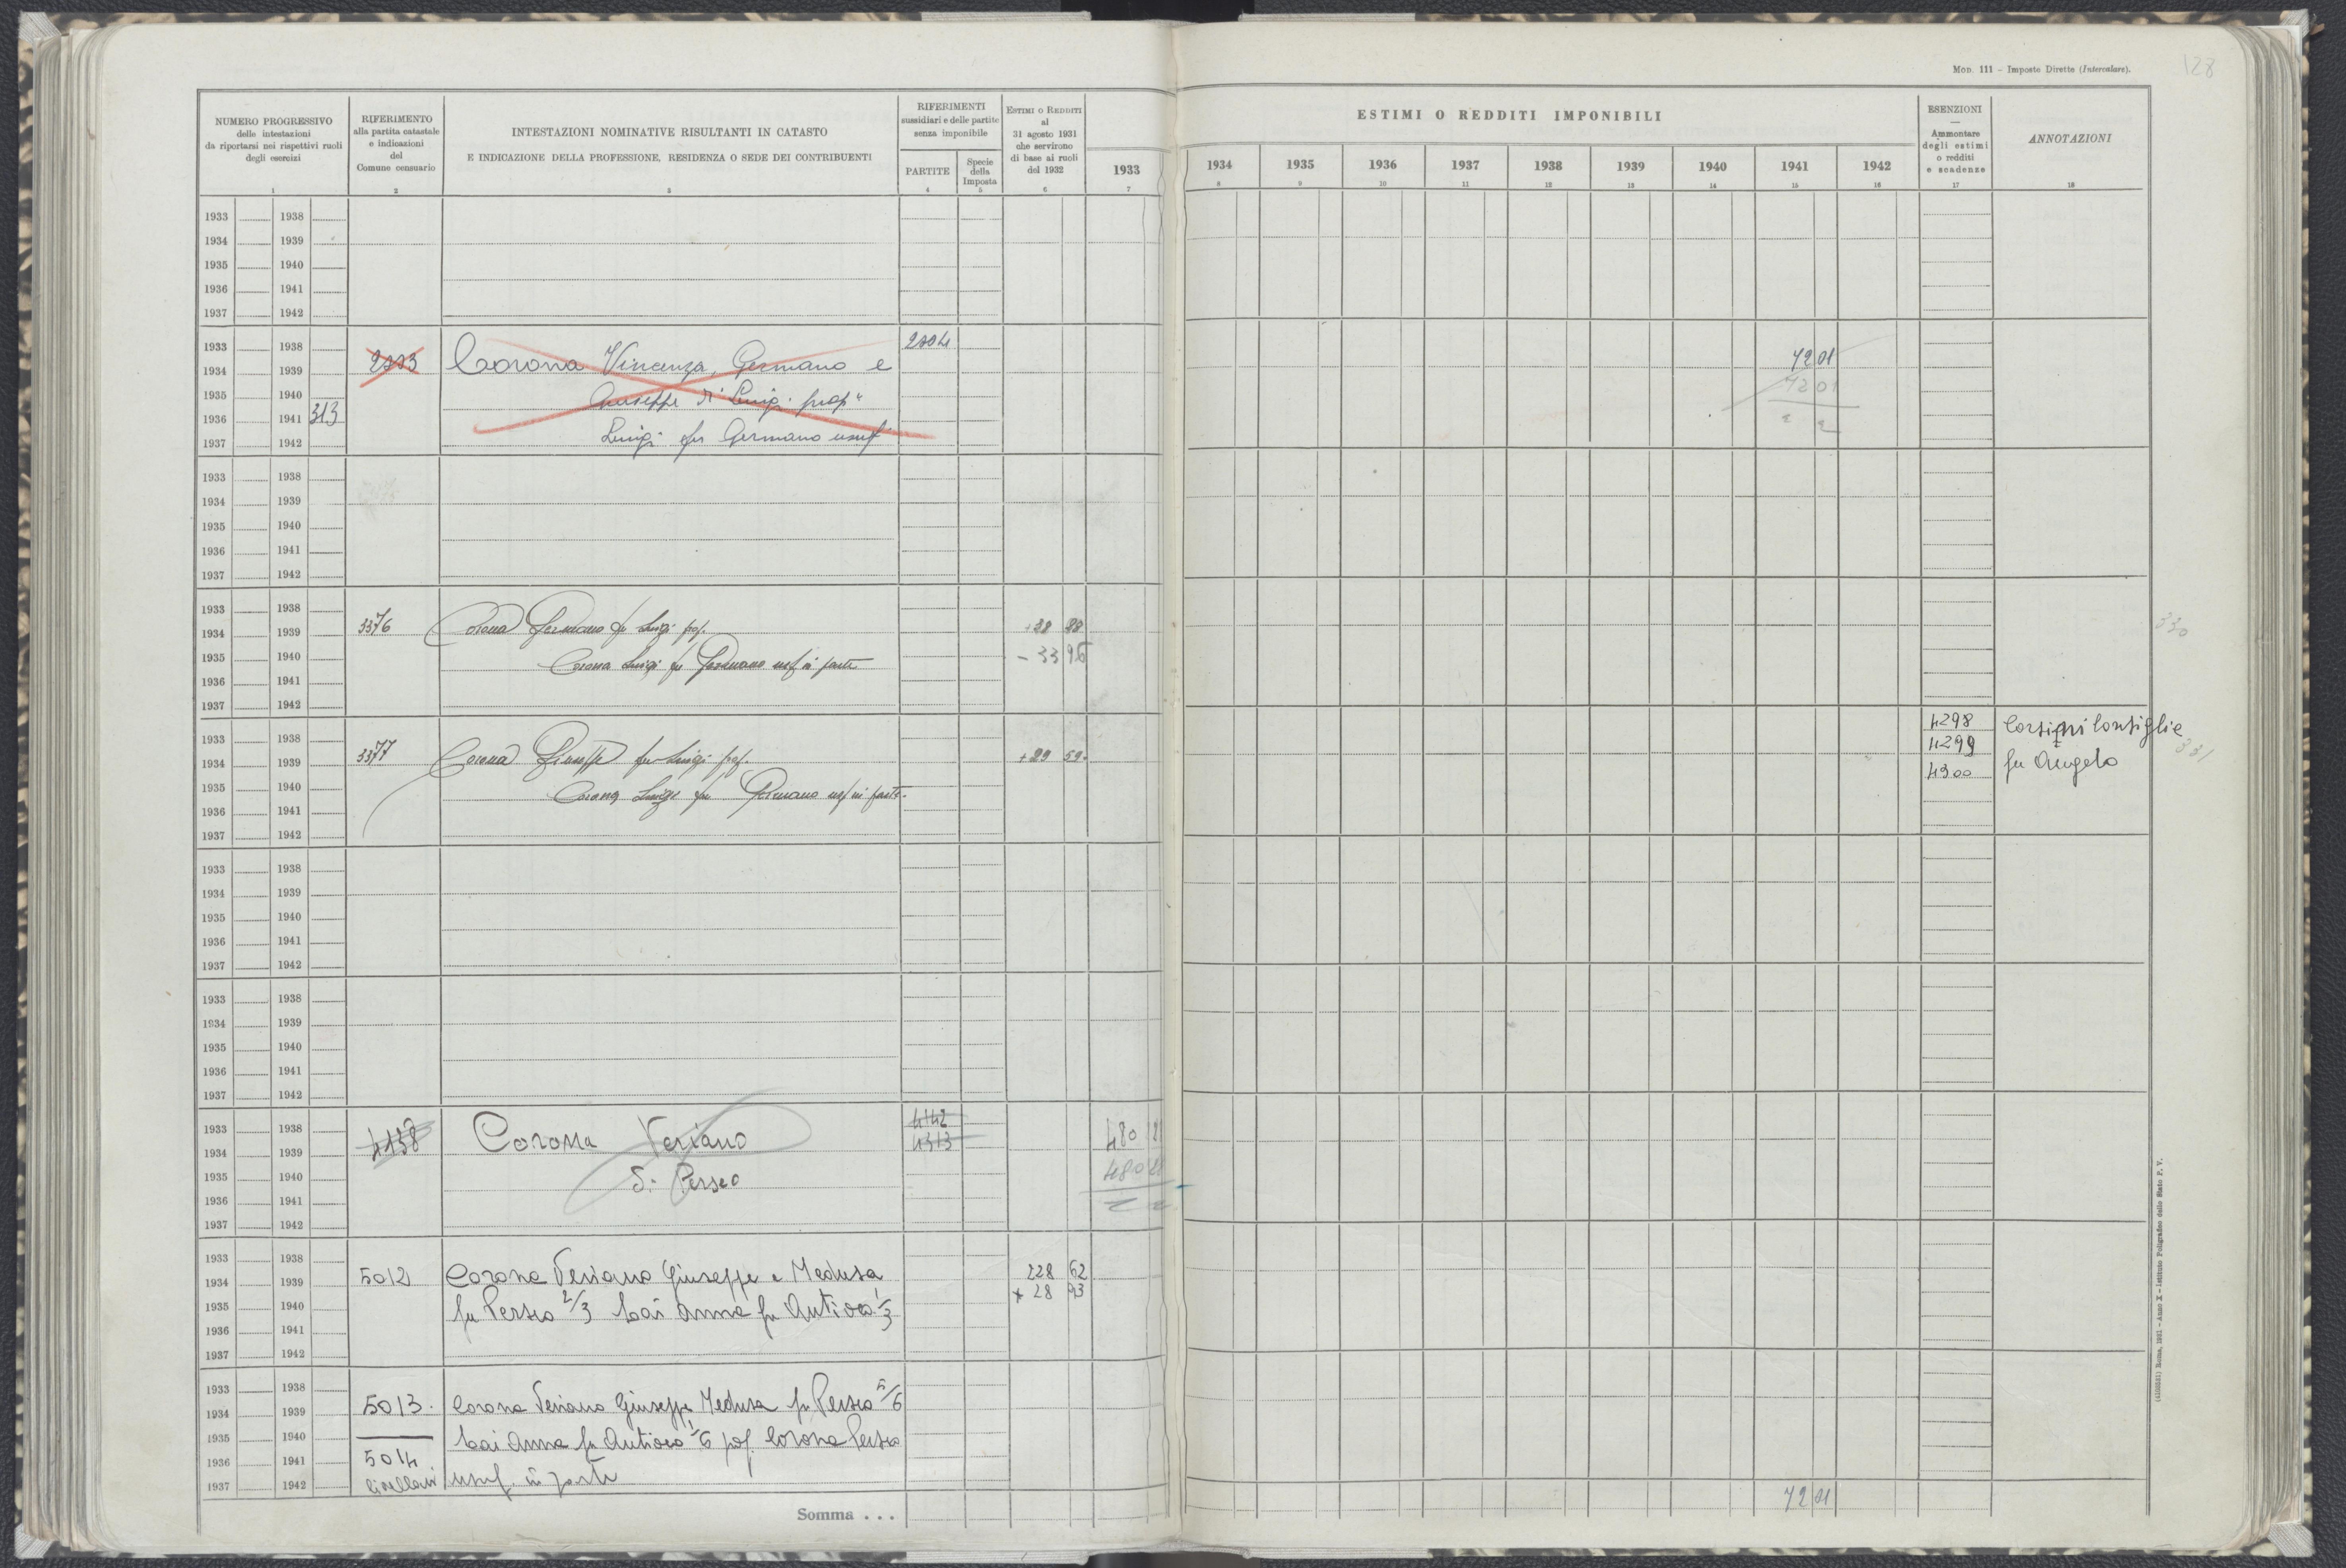 MOD. 111 – Imposte Dirette (Intercalare).
128
NUMERO PROGRESSIVO
delle intestazioni
da riportarsi nei rispettivi ruoli
degli esercizi
1
RIFERIMENTO
alla partita catastale
e indicazioni
del
Comune censuario
2
INTESTAZIONI NOMINATIVE RISULTANTI IN CATASTO
E INDICAZIONE DELLA PROFESSIONE, RESIDENZA O SEDE DEI CONTRIBUENTI
3
RIFERIMENTI
sussidiari e delle partite
senza imponibile
PARTITE
4
Specie
della
Imposta
5
ESTIMI O REDDITI
al
31 agosto 1931
che servirono
di base ai ruoli
del 1932
6
1933
7
ESTIMI O REDDITI IMPONIBILI
1934 1935 1936 1937 1938 1939 1940 1941 1942
8 9 10 11 12 13 14 15 16
ESENZIONI
—
Ammontare
degli estimi
o redditi
e scadenze
17
ANNOTAZIONI
18
1933 1938
1934 1939
1935 1940
1936 1941
1937 1942
1933 1938
1934 1939 Corona Vincenza, Germano e 72 01
1935 1940 Giuseppe di Luigi prop 72 01
1936 1941 313
1937 1942 Luigi fu Germano usuf
1933 1938
1934 1939
1935 1940
1936 1941
1937 1942
1933 1938
1934 1939 3376 Corona Germano fu Luigi prop. 330
1935 1940 Corona Luigi fu Germano usuf in parte – 33 96
1936 1941
1937 1942
1933 1938 4298 Corsini Consiglie
1934 1939 3377 Corona Giuseppe fu Luigi prop. + 29 59 4299 331
1935 1940 Corona Luigi fu Germano usuf in parte 4300 fu Angelo
1936 1941
1937 1942
1933 1938
1934 1939
1935 1940
1936 1941
1937 1942
1933 1938
1934 1939
1935 1940
1936 1941
1937 1942
1933 1938 4142
1934 1939 4138 Corona Veriano 4313 480
1935 1940 di Perseo 480
1936 1941
1937 1942
1933 1938
1934 1939 5012 Corona Veriano Giuseppe e Medusa 228 62
1935 1940 fu Perseo 2/3 Cai Anna fu Antioco 1/3 28 93
1936 1941
1937 1942
1933 1938
1934 1939 5013 Corona Veriano Giuseppe Medusa fu Perseo 5/6
1935 1940 Cai Anna fu Antioco 1/6 prop. Corona Perseo
1936 1941 5014
1937 1942 livellari usuf. in parte
Somma . . . 72 01
(4103251) Roma, 1931 – Anno X – Istituto Poligrafico dello Stato P. V.